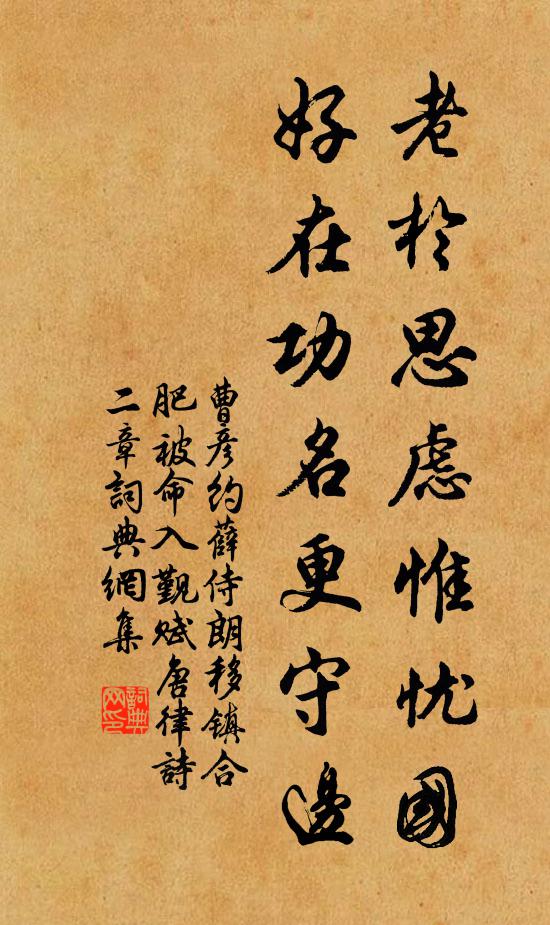 老於思慮惟忧國
好在功名更守邊
曹彥約薛侍朗移鎮合
肥被命入觐赋唐律詩
二章詞典網集
詞典
网印